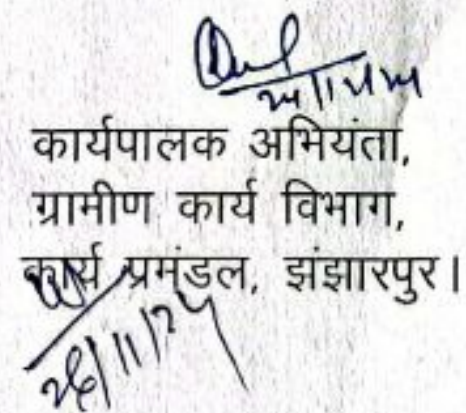 कार्यपालक अभियंता,
ग्रामीण कार्य विभाग,
कार्य प्रमंडल, झंझारपुर।
26/11/24